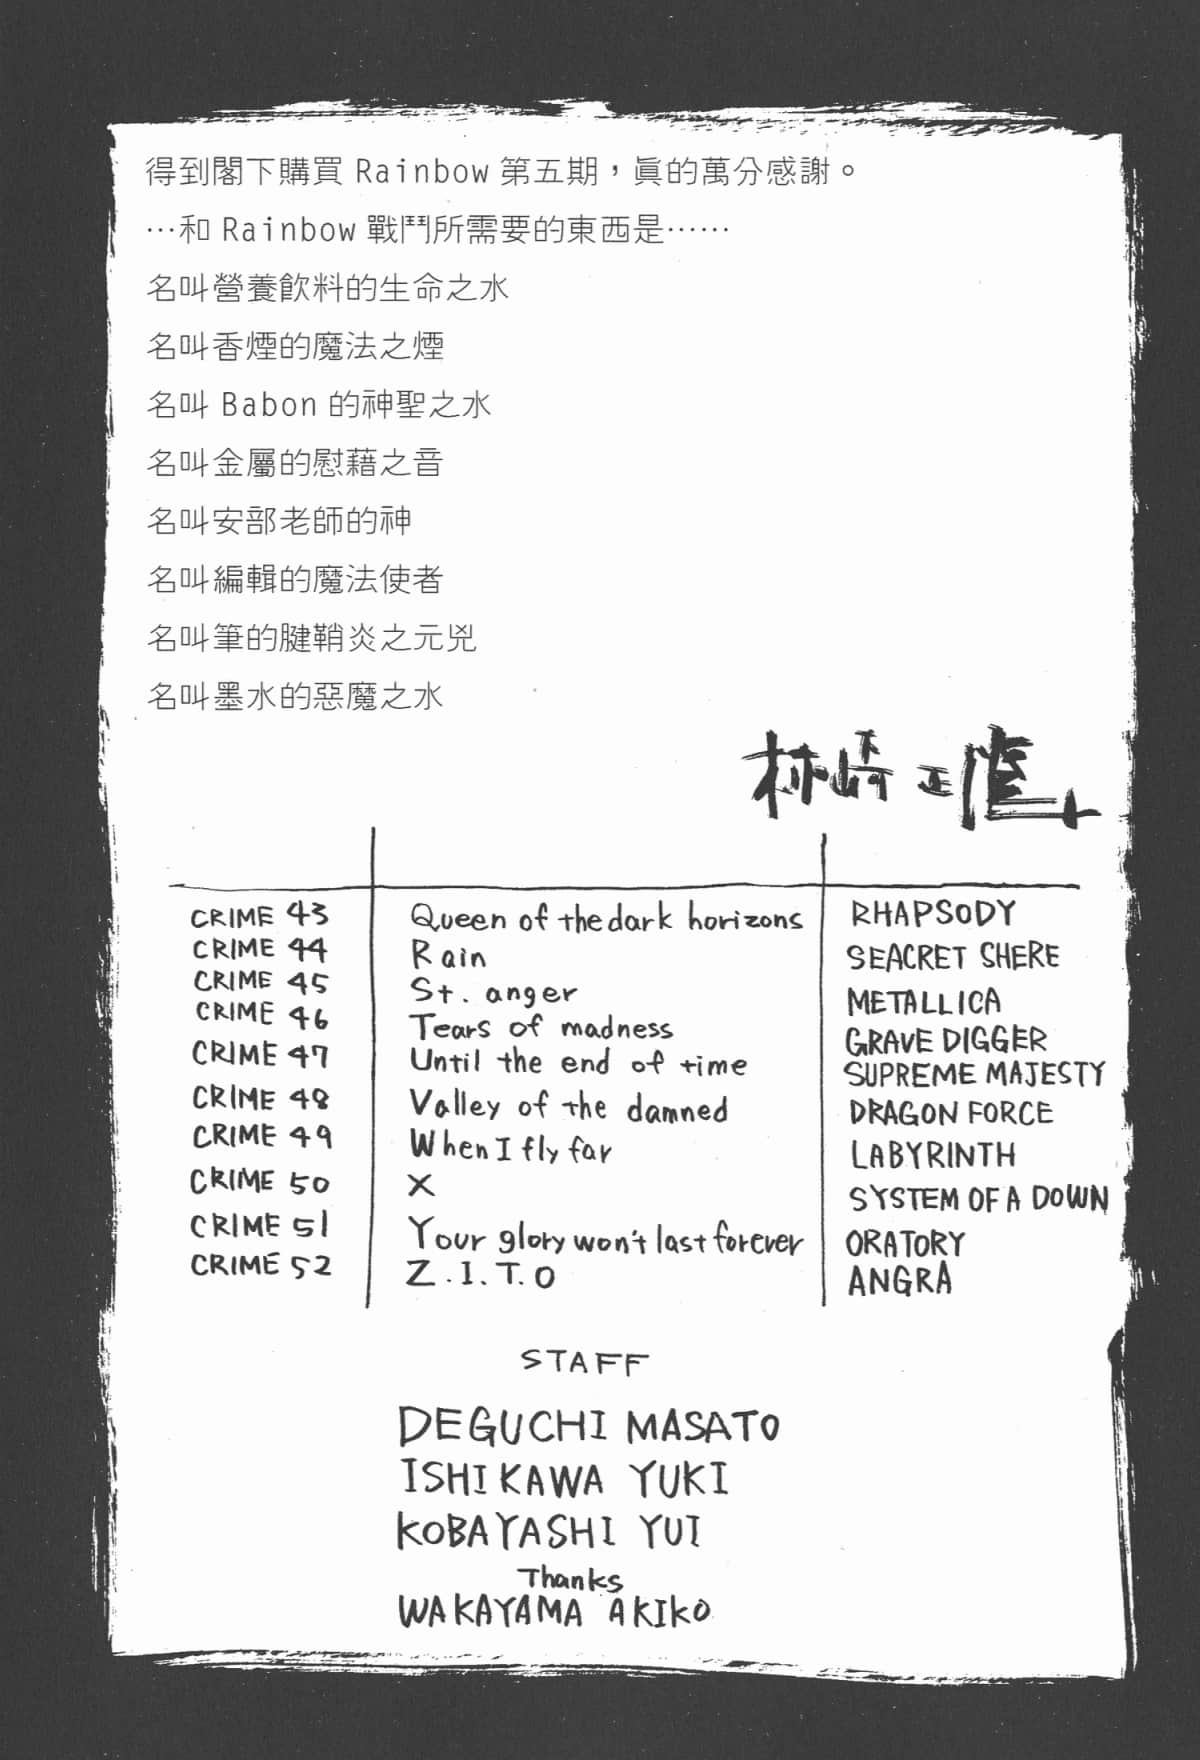 得到閣下購買 Rainbow 第五期，眞的萬分感謝。
…和 Rainbow 戰鬥所需要的東西是……
名叫營養飲料的生命之水
名叫香煙的魔法之煙
名叫 Babon 的神聖之水
名叫金屬的慰藉之音
名叫安部老師的神
名叫編輯的魔法使者
名叫筆的腱鞘炎之元兇
名叫墨水的惡魔之水
CRIME 43 Queen of the dark horizons RHAPSODY
CRIME 44 Rain SEACRET SHERE
CRIME 45 St. anger METALLICA
CRIME 46 Tears of madness GRAVE DIGGER
CRIME 47 Until the end of time SUPREME MAJESTY
CRIME 48 Valley of the damned DRAGON FORCE
CRIME 49 When I fly far LABYRINTH
CRIME 50 X SYSTEM OF A DOWN
CRIME 51 Your glory won't last forever ORATORY
CRIME 52 Z.I.T.O ANGRA
STAFF
DEGUCHI MASATO
ISHIKAWA YUKI
KOBAYASHI YUI
Thanks
WAKAYAMA AKIKO